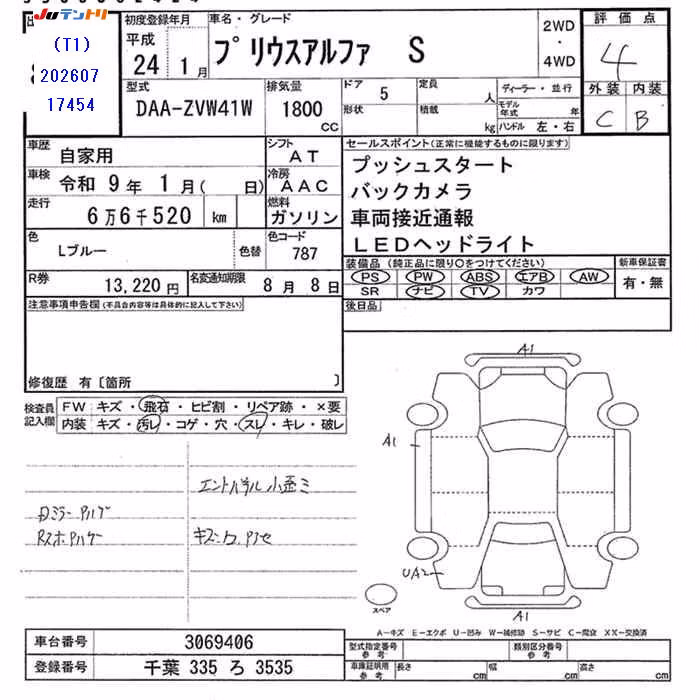 JUテントリ
(T1)
202607
17454
初度登録年月
平成
24 1月
車名・グレード
プリウスアルファ S
2WD
・
4WD
評価点
4
外装 内装
C B
型式
DAA-ZVW41W
排気量
1800
CC
ドア 5
形状
定員 人
積載 kg
ディーラー・並行
モデル年式 年
ハンドル 左・右
車歴 自家用
シフト AT
車検 令和 9年 1月( 日)
冷房 AAC
走行 6万6千520 km
燃料 ガソリン
色 Lブルー 色替
色コード 787
R券 13,220円
名変通知期限 8月 8日
セールスポイント(正常に機能するものに限ります)
プッシュスタート
バックカメラ
車両接近通報
LEDヘッドライト
装備品 (純正品に限り○をつけてください)
PS PW ABS エアB AW
SR ナビ TV カワ
新車保証書
有・無
後日品
注意事項申告欄(不具合内容等は具体的に記入して下さい)
修復歴 有〔箇所 〕
検査員記入欄
FW キズ・飛石・ヒビ割・リペア跡・×要
内装 キズ・汚レ・コゲ・穴・スレ・キレ・破レ
キズ・ワレ
A1
A1
UA2
A1
スペア
A-キズ E-エクボ U-凹み W-補修跡 S-サビ C-腐食 XX-交換済
車台番号 3069406
登録番号 千葉 335 ろ 3535
型式指定番号 参考
類別区分番号 参考
車庫証明用 参考 長さ cm 幅 cm 高さ cm